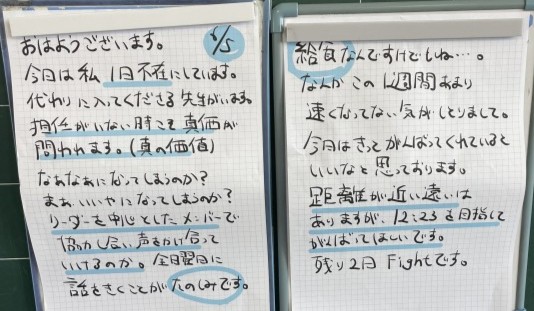 おはようございます。 6/5
今日は私 1日不在にしています。
代わりに入ってくださる先生がいます。
担任がいない時こそ真価が
問われます。(真の価値)
なあなあになってしまうのか?
まぁ、いいやになってしまうのか?
リーダーを中心としたメンバーで
協力し合い、声をかけ合って
いけるのか。金曜日に
話をきくことがたのしみです。
給食なんですけどもね…。
なんかこの1週間あまり
速くなってない気がしとりまして。
今日はきっとがんばってくれていると
いいなと思っております。
距離が近い遠いは
ありますが、12:23を目指して
がんばってほしいです。
残り2日 Fightです。